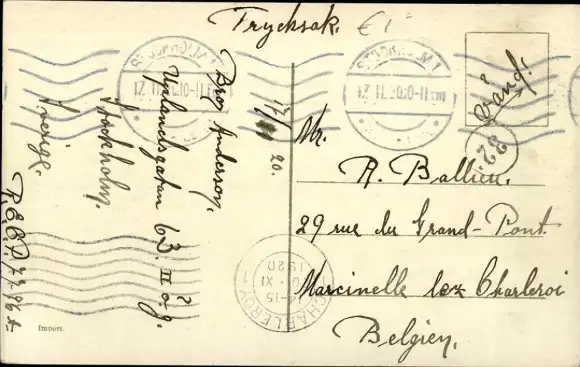 Trycksak.
STOCKHOLM 1
17. 11. 20. 10-11 fm
STOCKHOLM 1
17. 11. 20. 10-11 fm
vänd.
22.
Bror Anderson,
Uplandsgatan 63. II ö g.
Stockholm,
Sverige.
17/11 20.
Mr.
R. Ballieu.
29 rue du Grand-Pont.
Marcinelle lez Charleroi
Belgien,
CHARLEROI 1
14-15
XI
1920
Import.